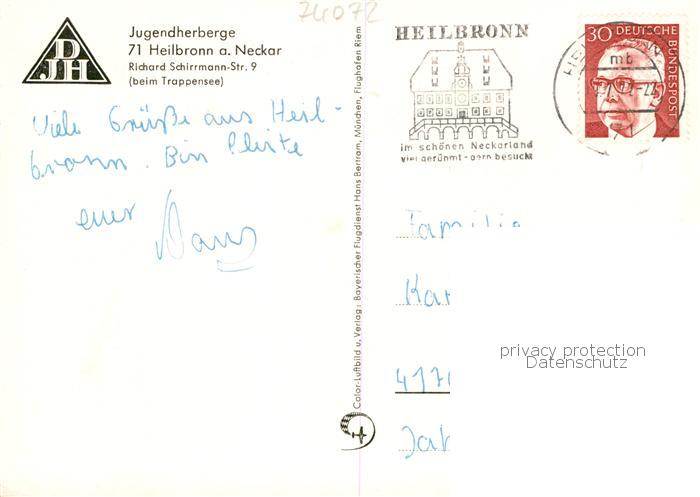 74072
DJH
Jugendherberge
71 Heilbronn a. Neckar
Richard Schirrmann-Str. 9
(beim Trappensee)
Viele Grüße aus Heil-
bronn. Bin Pleite
euer
Color-Luftbild u. Verlag: Bayerischer Flugdienst Hans Bertram, München, Flughafen Riem
HEILBRONN
im schönen Neckarland
viel gerühmt - gern besucht
30 DEUTSCHE
BUNDESPOST
mb
Familie
Kar
417
privacy protection
Datenschutz